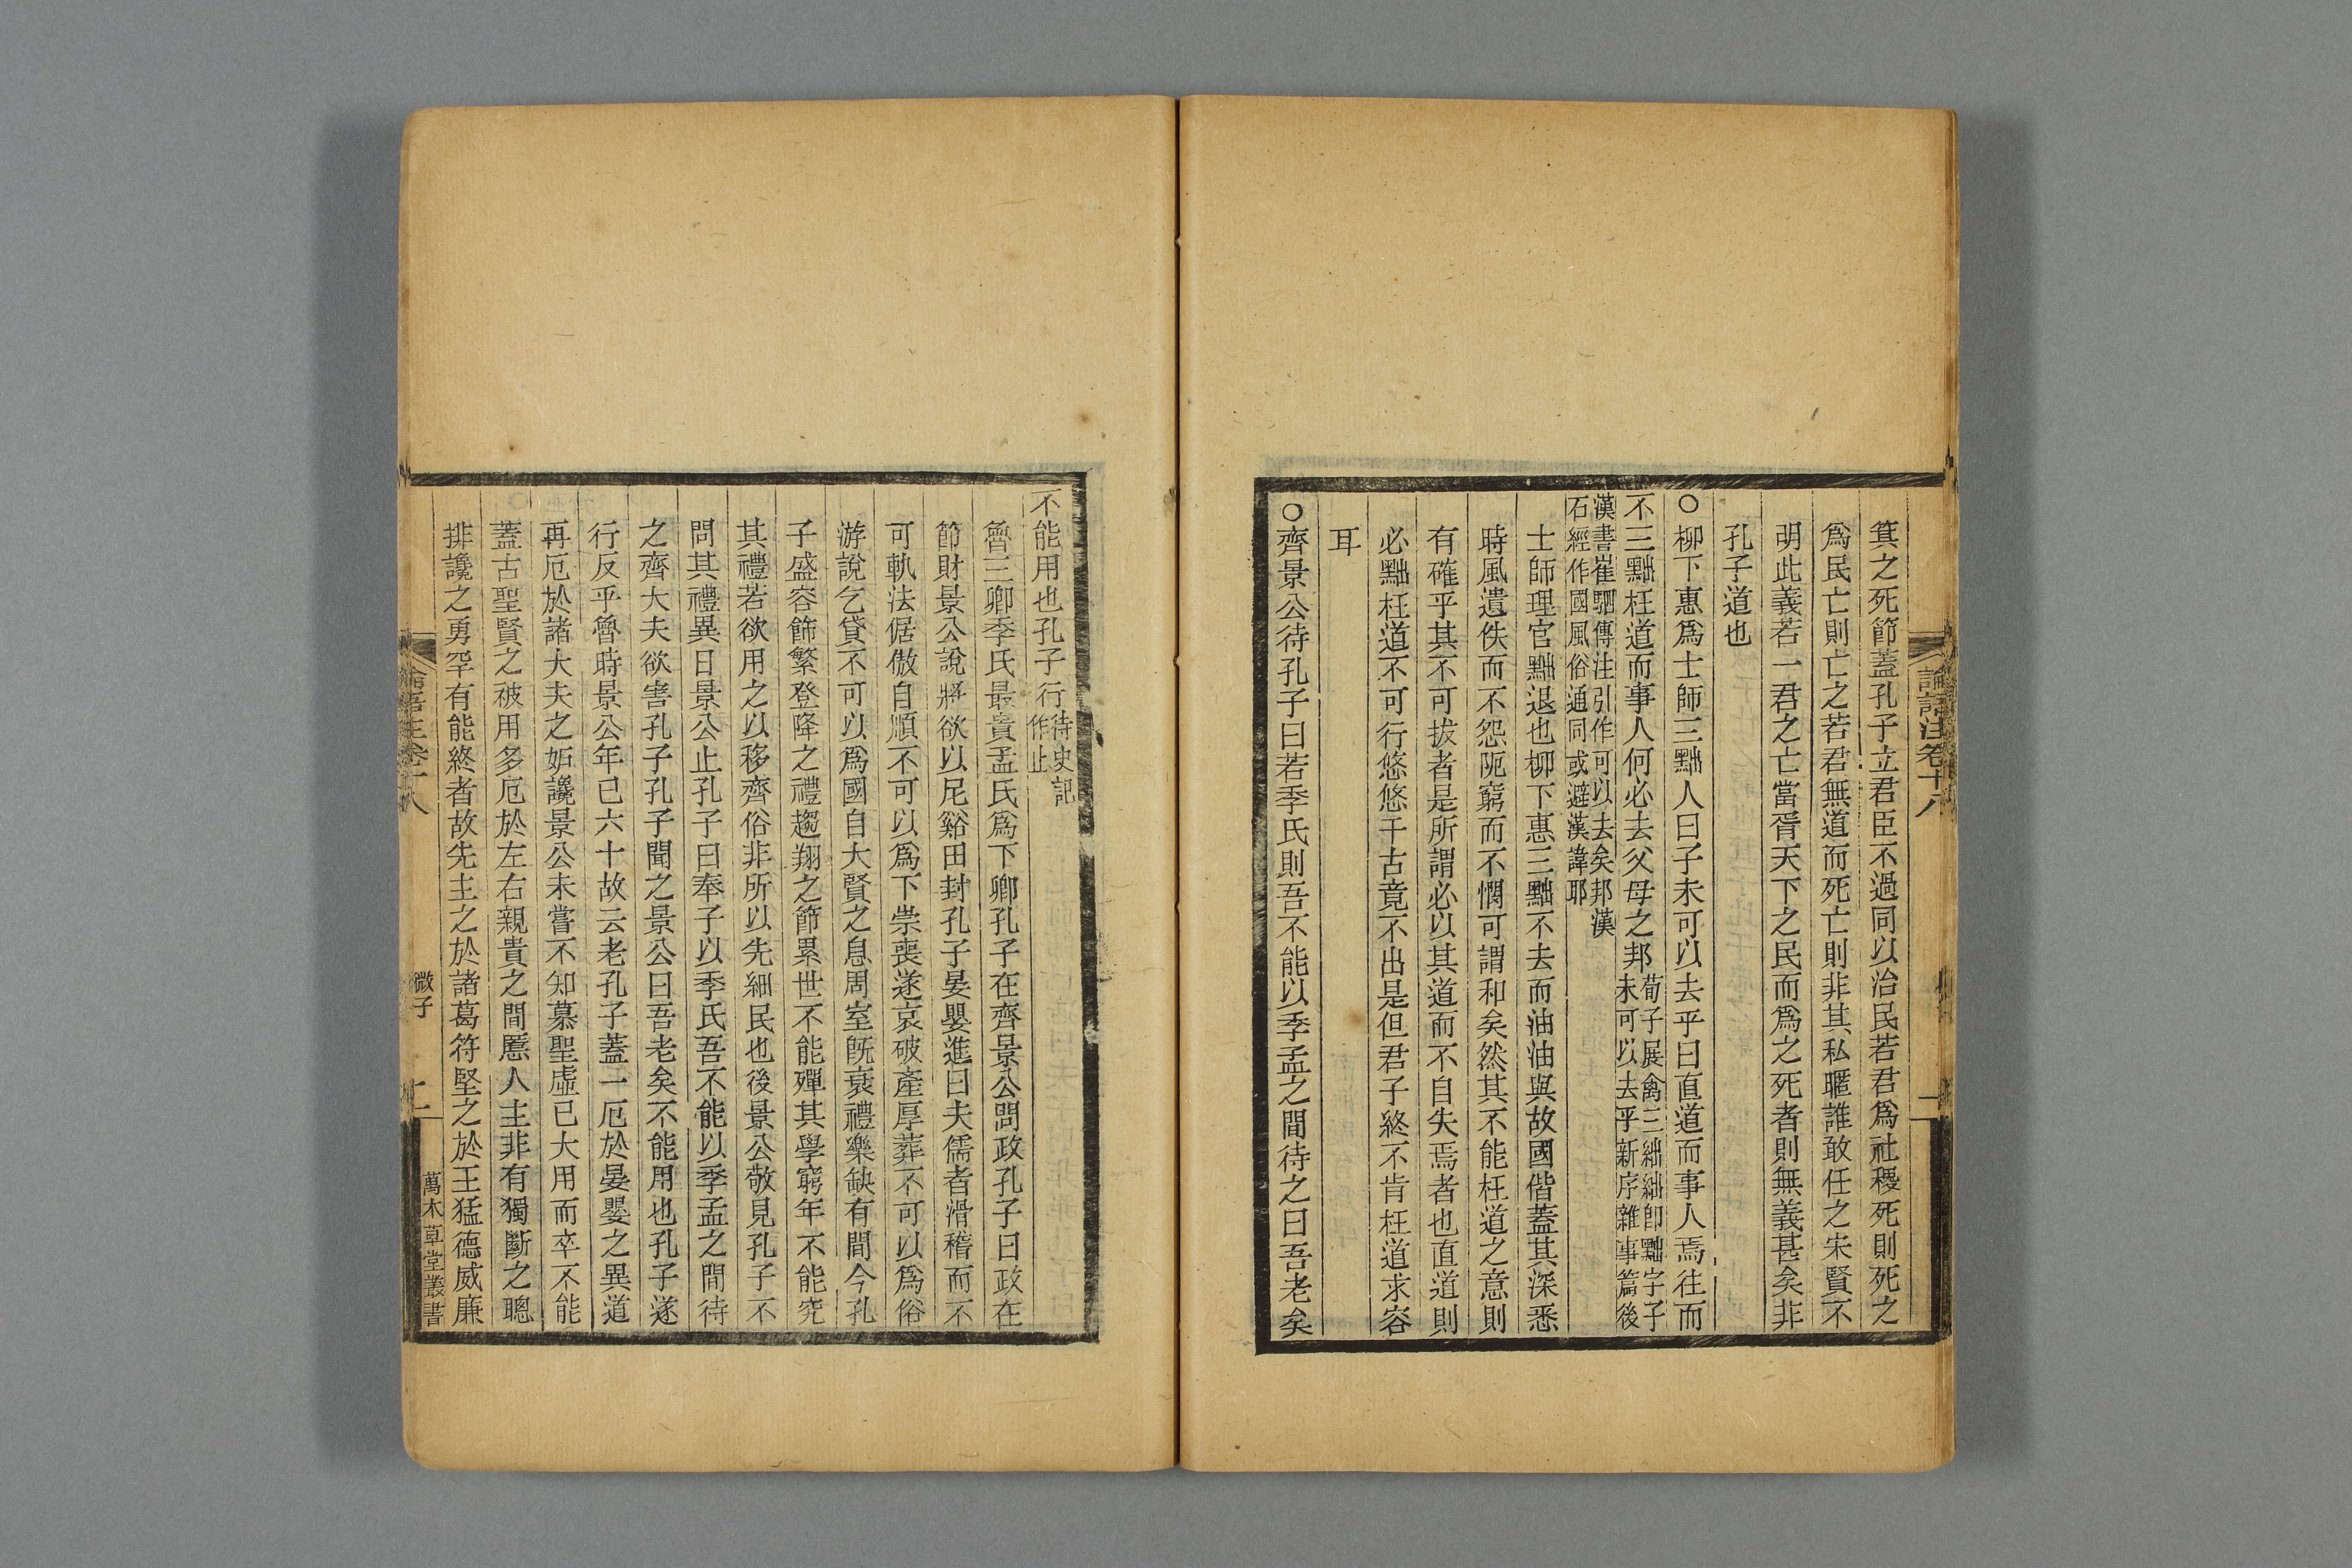 論語注卷十八
二
箕之死節蓋孔子立君臣不過同以治民若君爲社稷死則死之
爲民亡則亡之若君無道而死亡則非其私暱誰敢任之宋賢不
明此義若一君之亡當胥天下之民而爲之死者則無義甚矣非
孔子道也
○柳下惠爲士師三黜人曰子未可以去乎曰直道而事人焉往而
不三黜枉道而事人何必去父母之邦
荀子展禽三絀絀卽黜字子
未可以去乎新序雜事篇後
漢書崔駰傳注引作可以去矣邦漢
石經作國風俗通同或避漢諱耶
士師理官黜退也柳下惠三黜不去而油油與故國偕蓋其深悉
時風遺佚而不怨阨窮而不憫可謂和矣然其不能枉道之意則
有確乎其不可拔者是所謂必以其道而不自失焉者也直道則
必黜枉道不可行悠悠千古竟不出是但君子終不肯枉道求容
耳
○齊景公待孔子曰若季氏則吾不能以季孟之間待之曰吾老矣
不能用也孔子行
待史記
作止
魯三卿季氏最貴孟氏爲下卿孔子在齊景公問政孔子曰政在
節財景公說將欲以尼谿田封孔子晏嬰進曰夫儒者滑稽而不
可軌法倨傲自順不可以爲下崇喪遂哀破產厚葬不可以爲俗
游說乞貸不可以爲國自大賢之息周室旣衰禮樂缺有間今孔
子盛容飾繁登降之禮趨翔之節累世不能殫其學窮年不能究
其禮若欲用之以移齊俗非所以先細民也後景公敬見孔子不
問其禮異日景公止孔子曰奉子以季氏吾不能以季孟之間待
之齊大夫欲害孔子孔子聞之景公曰吾老矣不能用也孔子遂
行反乎魯時景公年已六十故云老孔子蓋一厄於晏嬰之異道
再厄於諸大夫之妬讒景公未嘗不知慕聖虛已大用而卒不能
蓋古聖賢之被用多厄於左右親貴之間慝人主非有獨斷之聰
排讒之勇罕有能終者故先主之於諸葛符堅之於王猛德威廉
論語注卷十八
微子
二
萬木草堂叢書